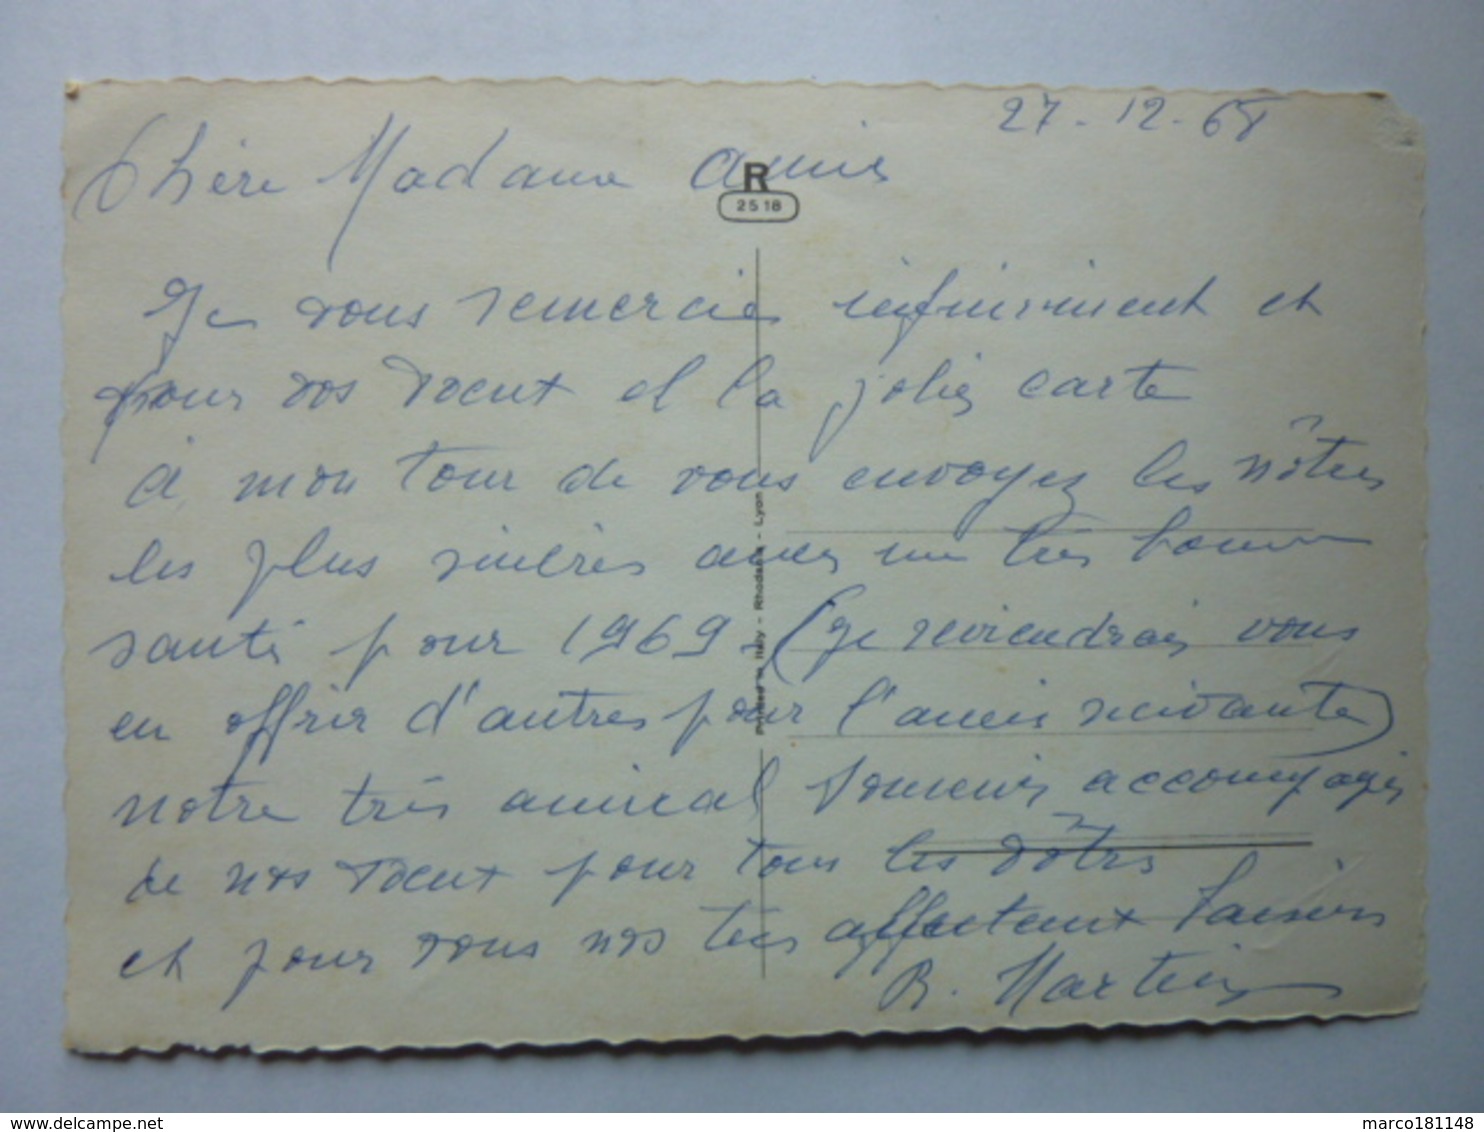 27-12-68
Chère Madame Amie
R
2518
Je vous remercie infiniment et
pour vos voeux et la jolie carte
à mon tour de vous envoyez les nôtres
les plus sincères avec une très bonne
santé pour 1969 - (je reviendrai vous
en offrir d'autres pour l'année suivante)
notre très amical souvenir accompagné
de nos voeux pour tous les vôtres
et pour vous nos très affectueux baisers
R. Martin
Printed in Italy - Rhodania - Lyon
marco181148